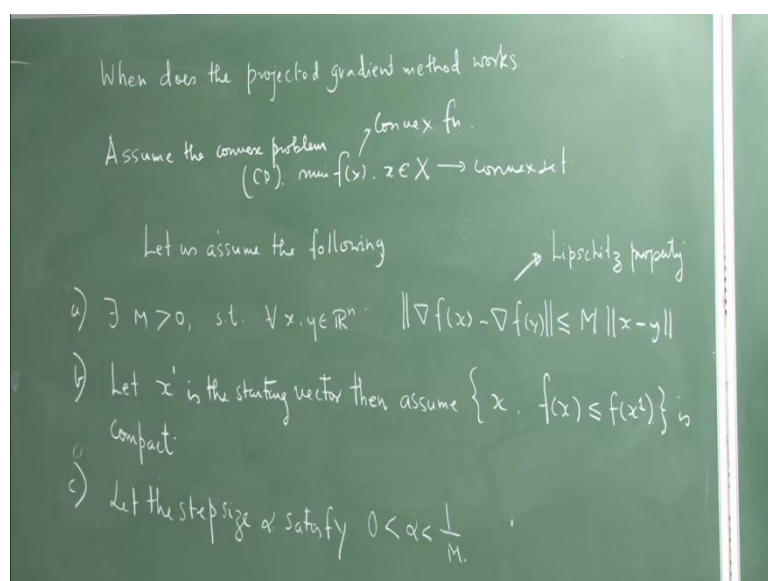 When does the projected gradient method works
Convex fn.
Assume the convex problem
(CP). min f(x). x ∈ X → convex set
Let us assume the following
Lipschitz property
a) ∃ M > 0, s.t. ∀ x, y ∈ ℝⁿ ‖∇f(x) - ∇f(y)‖ ≤ M ‖x - y‖
b) Let x¹ is the starting vector then assume { x : f(x) ≤ f(x¹) } is
compact.
c) Let the step size α satisfy 0 < α < 1/M.